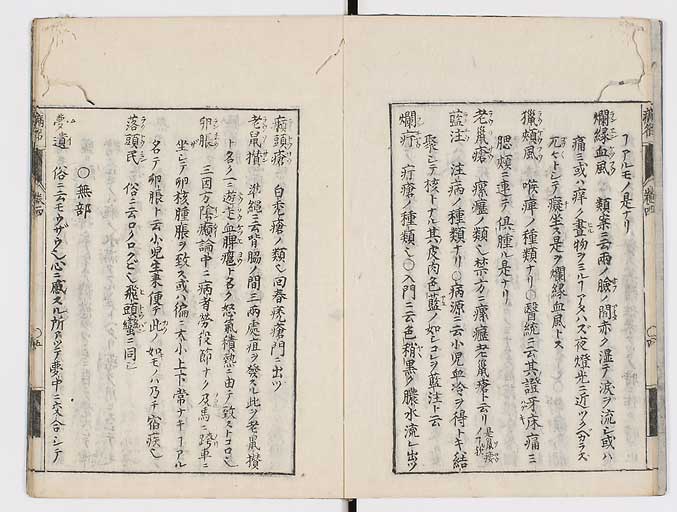 ヿアルモノ是ナリ
爛緣血風 類案ニ云両ノ臉ノ間赤ク湿テ淚ヲ流シ或ハ
痛ミ或ハ痒ク晝物ヲミルヿアタハズ夜燈光ニ近ツクベカラズ
トシテ癡坐ス是ヲ爛緣血風トス
獵頰風 喉痺ノ種類ナリ○醫統ニ云其證牙床痛ミ
腮頰ニ連テ倶腫ル是ナリ
老鼠瘡 瘰癧ノ類也禁方ニ瘰癧老鼠瘡ト云リ
藍注 注病ノ種類ナリ○病源ニ云小児血冷ヲ得トキ結
聚シテ核トナル其皮肉色藍ノ如シコレヲ藍注ト云
爛疔 疔瘡ノ種類也○入門ニ云色稍黒ク膿水流レ出ツ
癩頭瘡 白禿瘡ノ類也回春禿瘡門ニ出ツ
老鼠攅 準繩ニ云背脇ノ間ニ兩處疽ヲ發ス此ヲ老鼠攅
ト名ク一ニ遊走血脾癰ト名ク怒氣積熱ニ由テ致ストコロ也
卵脹 三因方陰㿗論中ニ病者労役節ナク及馬ニ跨車ニ
坐シテ卵核腫脹ヲ致ス或ハ偏ニ大小上下常ナキヿアル
名テ卵脹ト云小児生来便チ此ノ如モノハ乃チ宿疾也
落頭民 俗ニ云ロクロクビ也飛頭蠻ニ同シ
○無部
夢遺 俗ニ云モウザウ也心ニ感スル所アツテ夢中ニ交合シテ